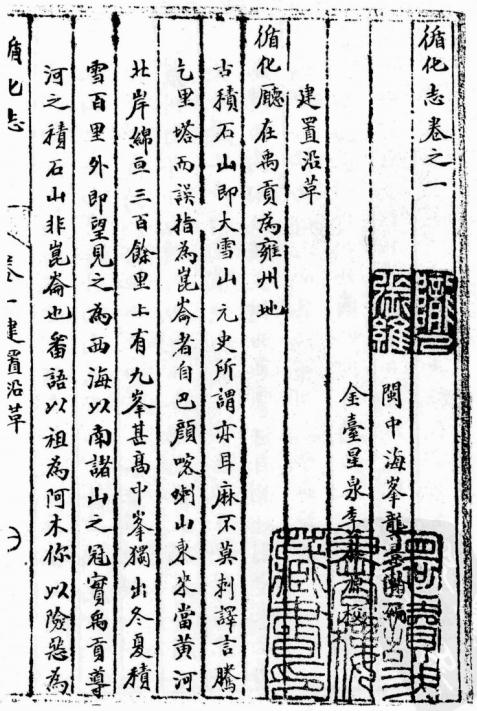 循化志卷之一
閩中海峯龔景瀚
金臺星泉李本源校
建置沿革
循化廳在禹貢為雍州地
古積石山即大雪山元史所謂亦耳麻不莫剌譯言騰
乞里塔而誤指為崑崙者自巴顏喀喇山東來當黃河
北岸綿亘三百餘里上有九峯甚高中峯獨出冬夏積
雪百里外即望見之為西海以南諸山之冠實禹貢導
河之積石山非崑崙也番語以祖為阿木你以險惡為
循化志 卷一建置沿革